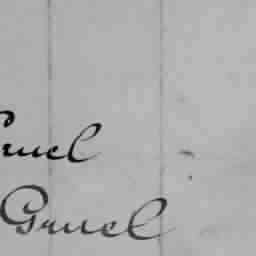 Gruel
Gruel